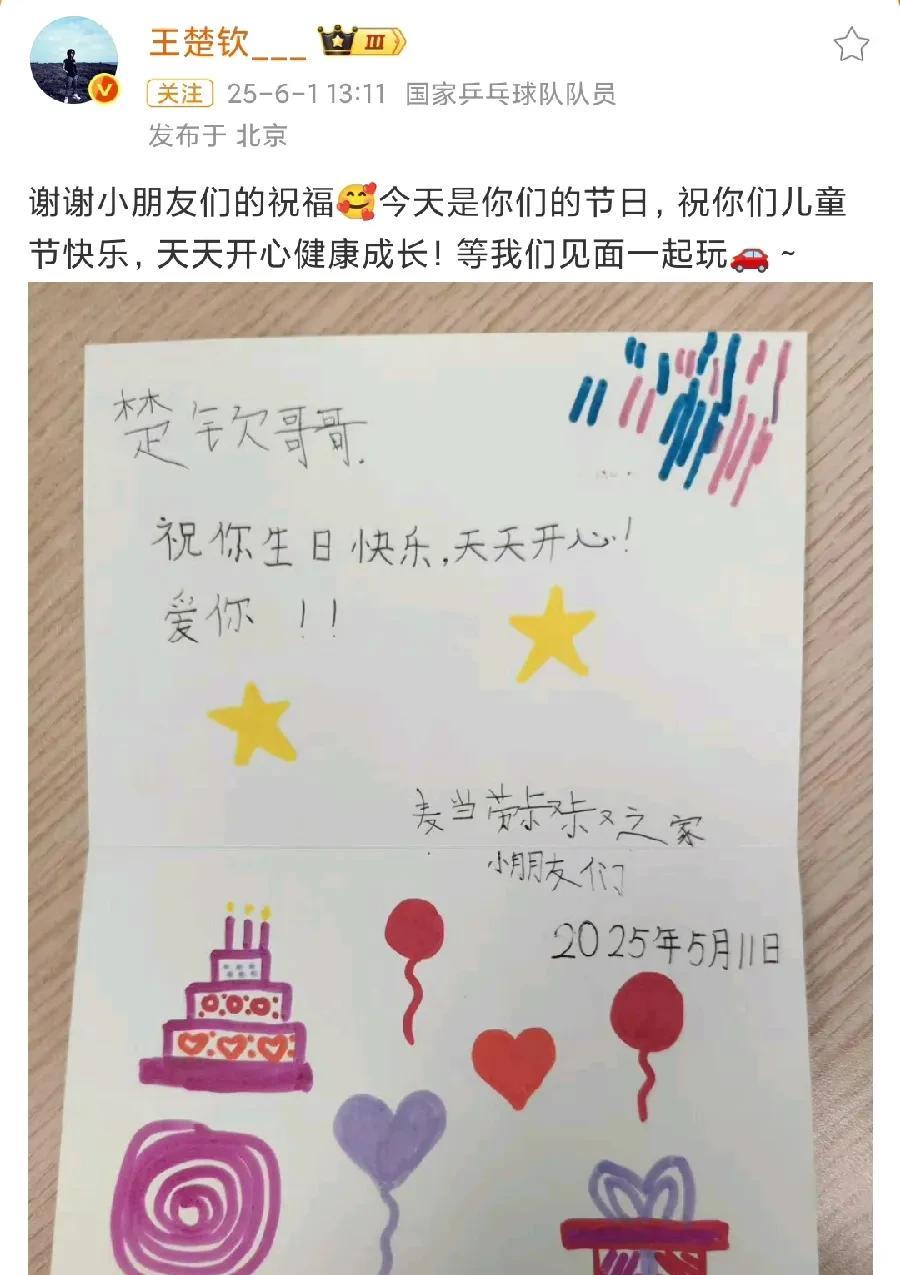 王楚钦___ III
关注 25-6-1 13:11 国家乒乓球队队员
发布于 北京
谢谢小朋友们的祝福🥰今天是你们的节日，祝你们儿童
节快乐，天天开心健康成长！等我们见面一起玩🚗 ~
楚钦哥哥.
祝你生日快乐,天天开心!
爱你 !!
麦当劳叔叔之家
小朋友们
2025年5月11日